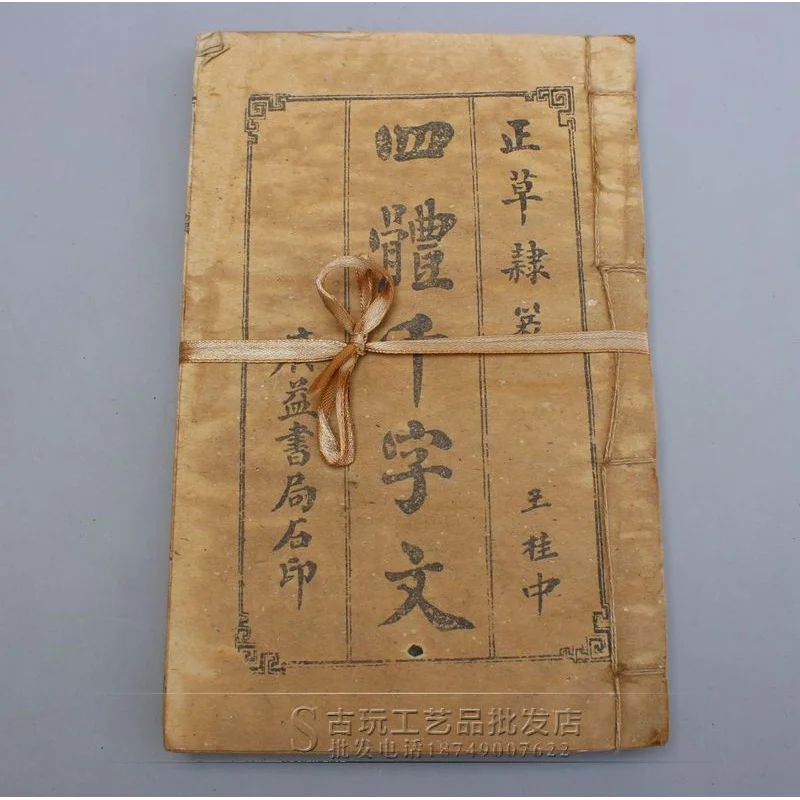 正草隸篆
王桂中
四體千字文
益書局石印
S古玩工艺品批发店
批发电话18749007622